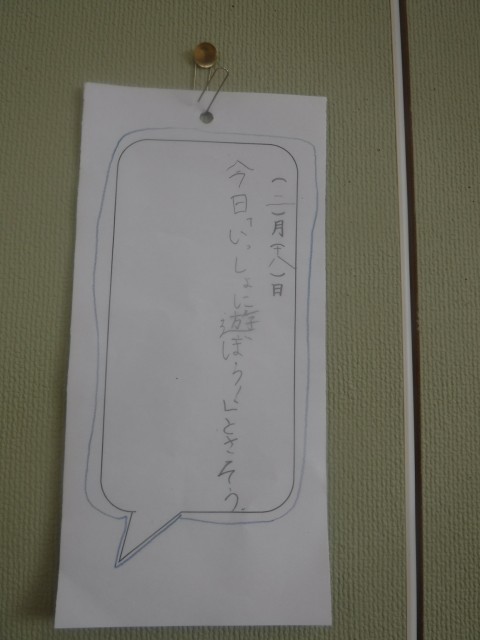 (二)月(十八)日
今日「いっしょに遊ぼうよ」とさそう。